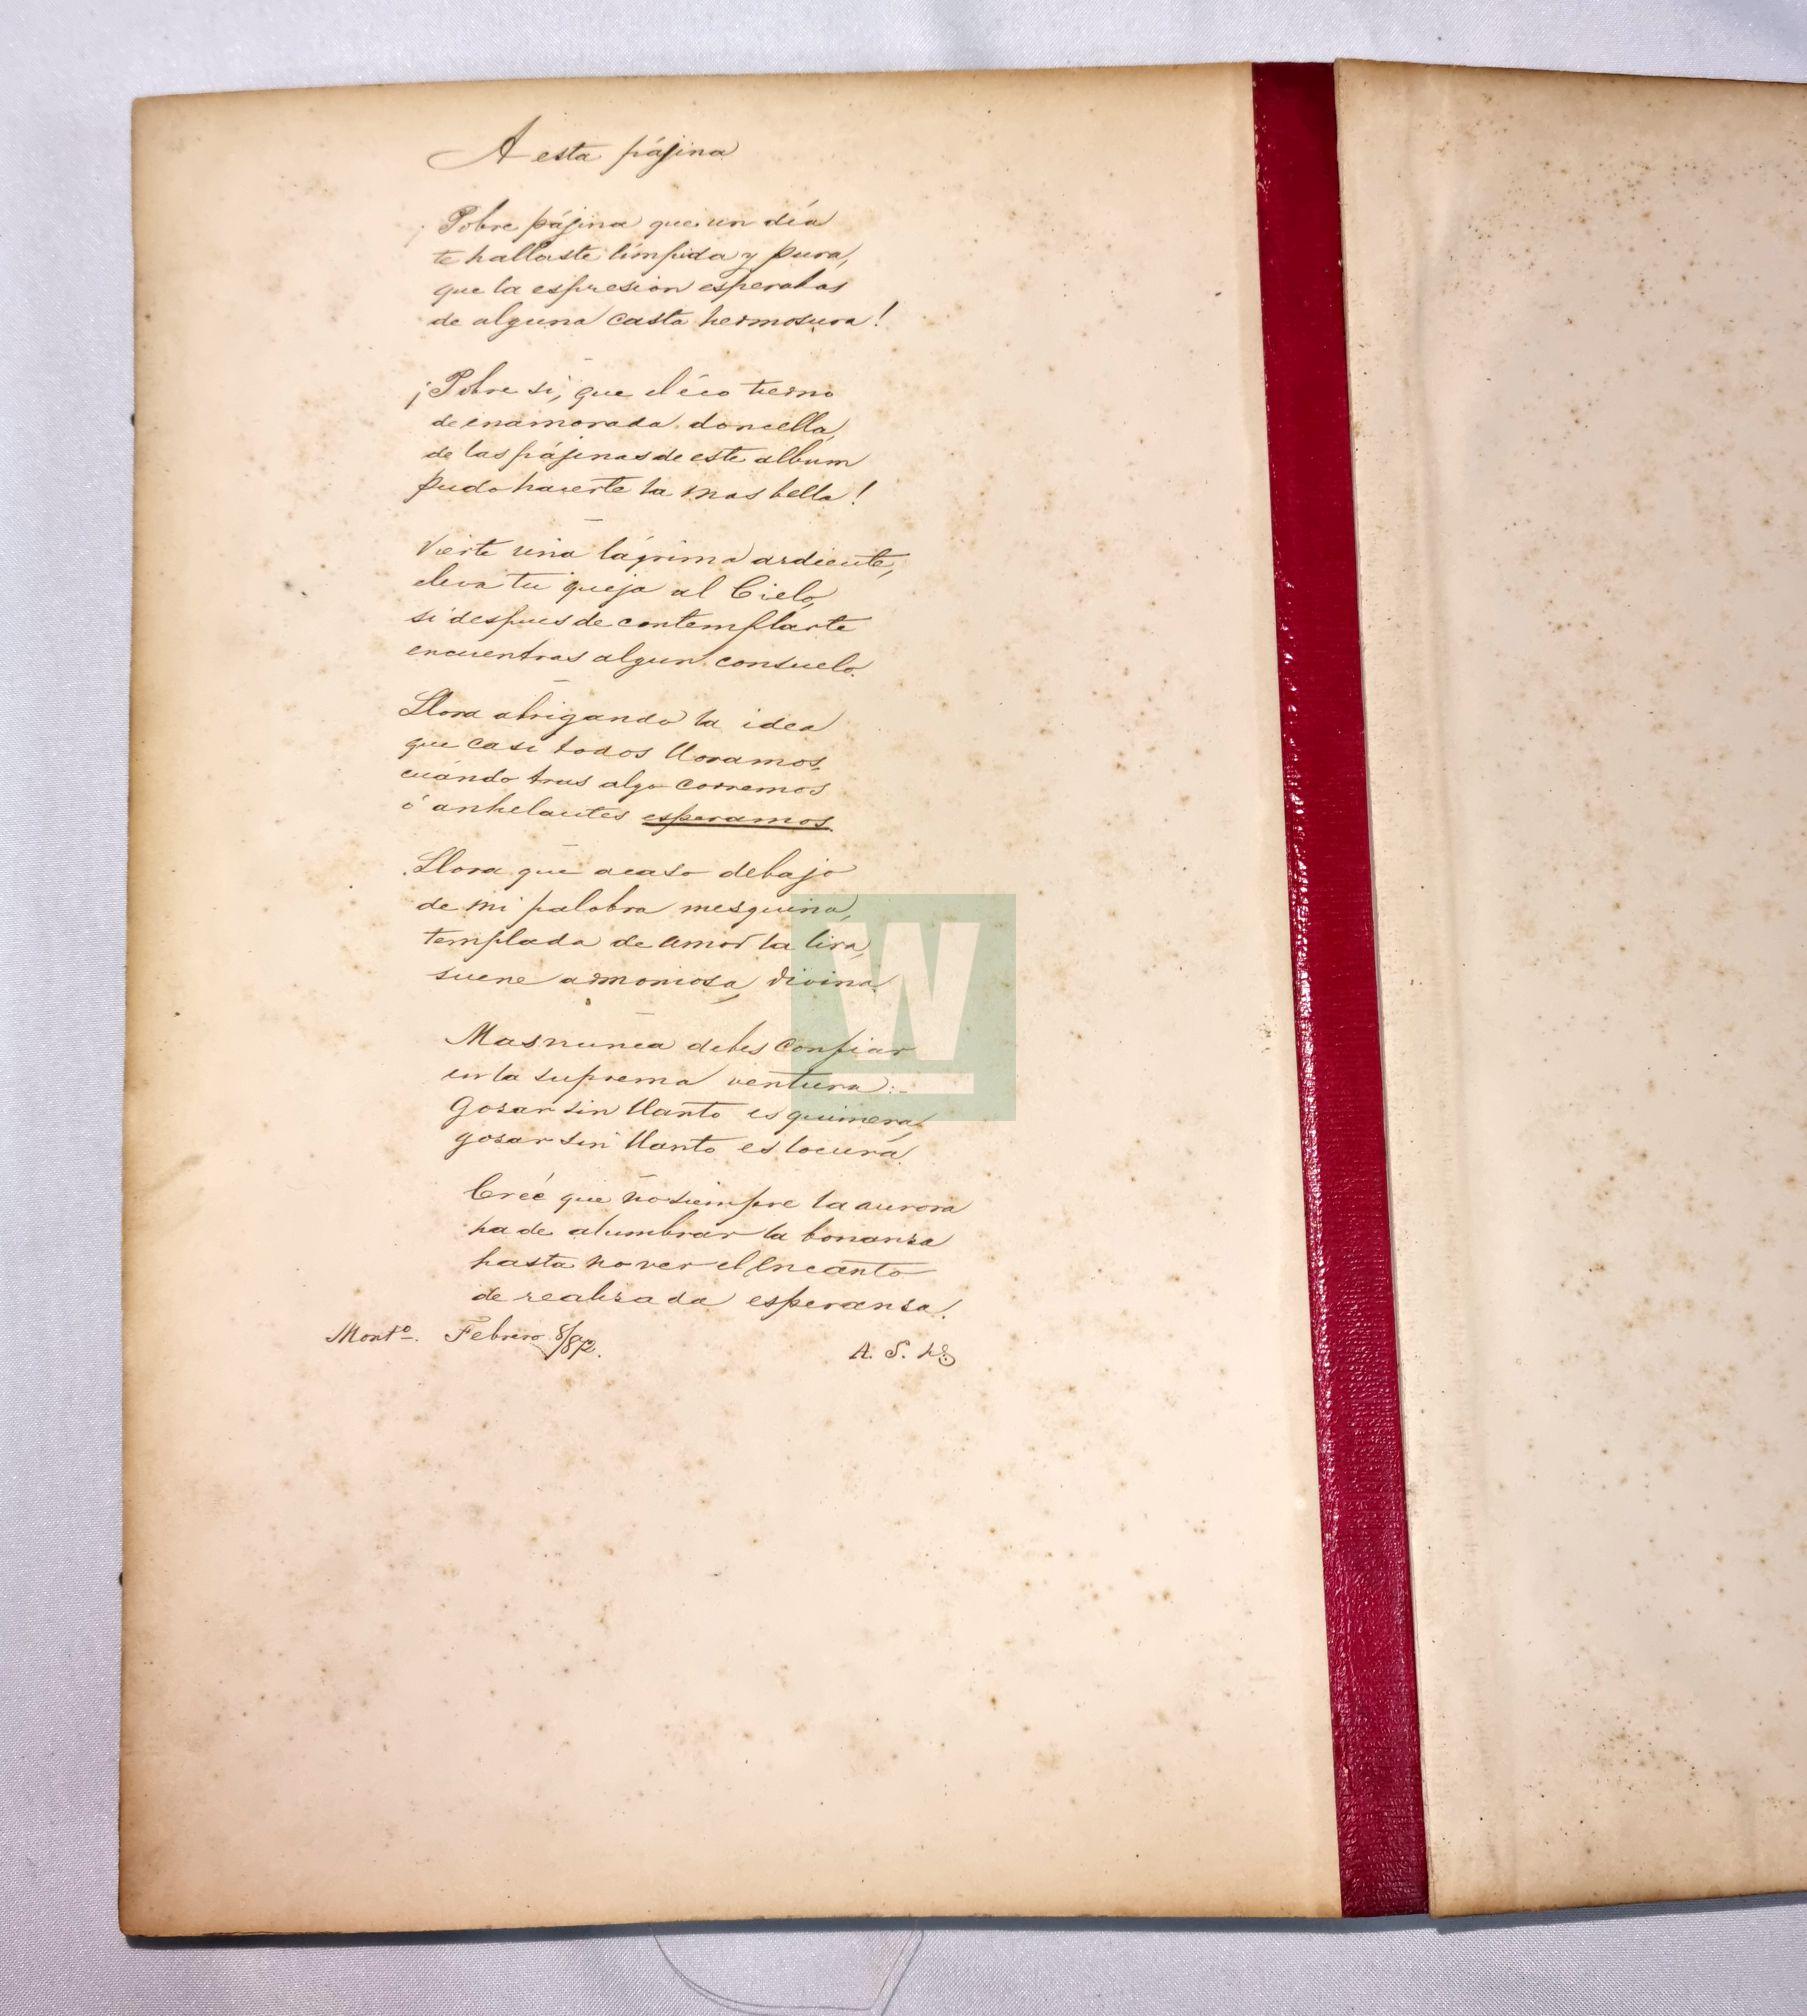 A esta pájina
¡Pobre pájina que un día
te hallaste límpida y pura,
que la espresion esperabas
de alguna casta hermosura!
¡Pobre si, que el éco tierno
de enamorada doncella,
de las pájinas de este album
pudo hacerte la mas bella!
Vierte una lágrima ardiente,
eleva tu queja al Cielo,
si despues de contemplarte
encuentras algun consuelo.
Llora abrigando la idea
que casi todos lloramos,
cuándo tras algo corremos
ó anhelantes esperamos.
Llora que acaso debajo
de mi palabra mesquina,
templada de amor la lira,
suene armoniosa, divina.
Mas nunca debes confiar
en la suprema ventura:-
Gosar sin llanto es quimera,
gosar sin llanto es locura.
Creé que no siempre la aurora
ha de alumbrar la bonansa
hasta no ver el encanto
de realisada esperansa!
Montº. Febrero 8/82.
A. S.
W